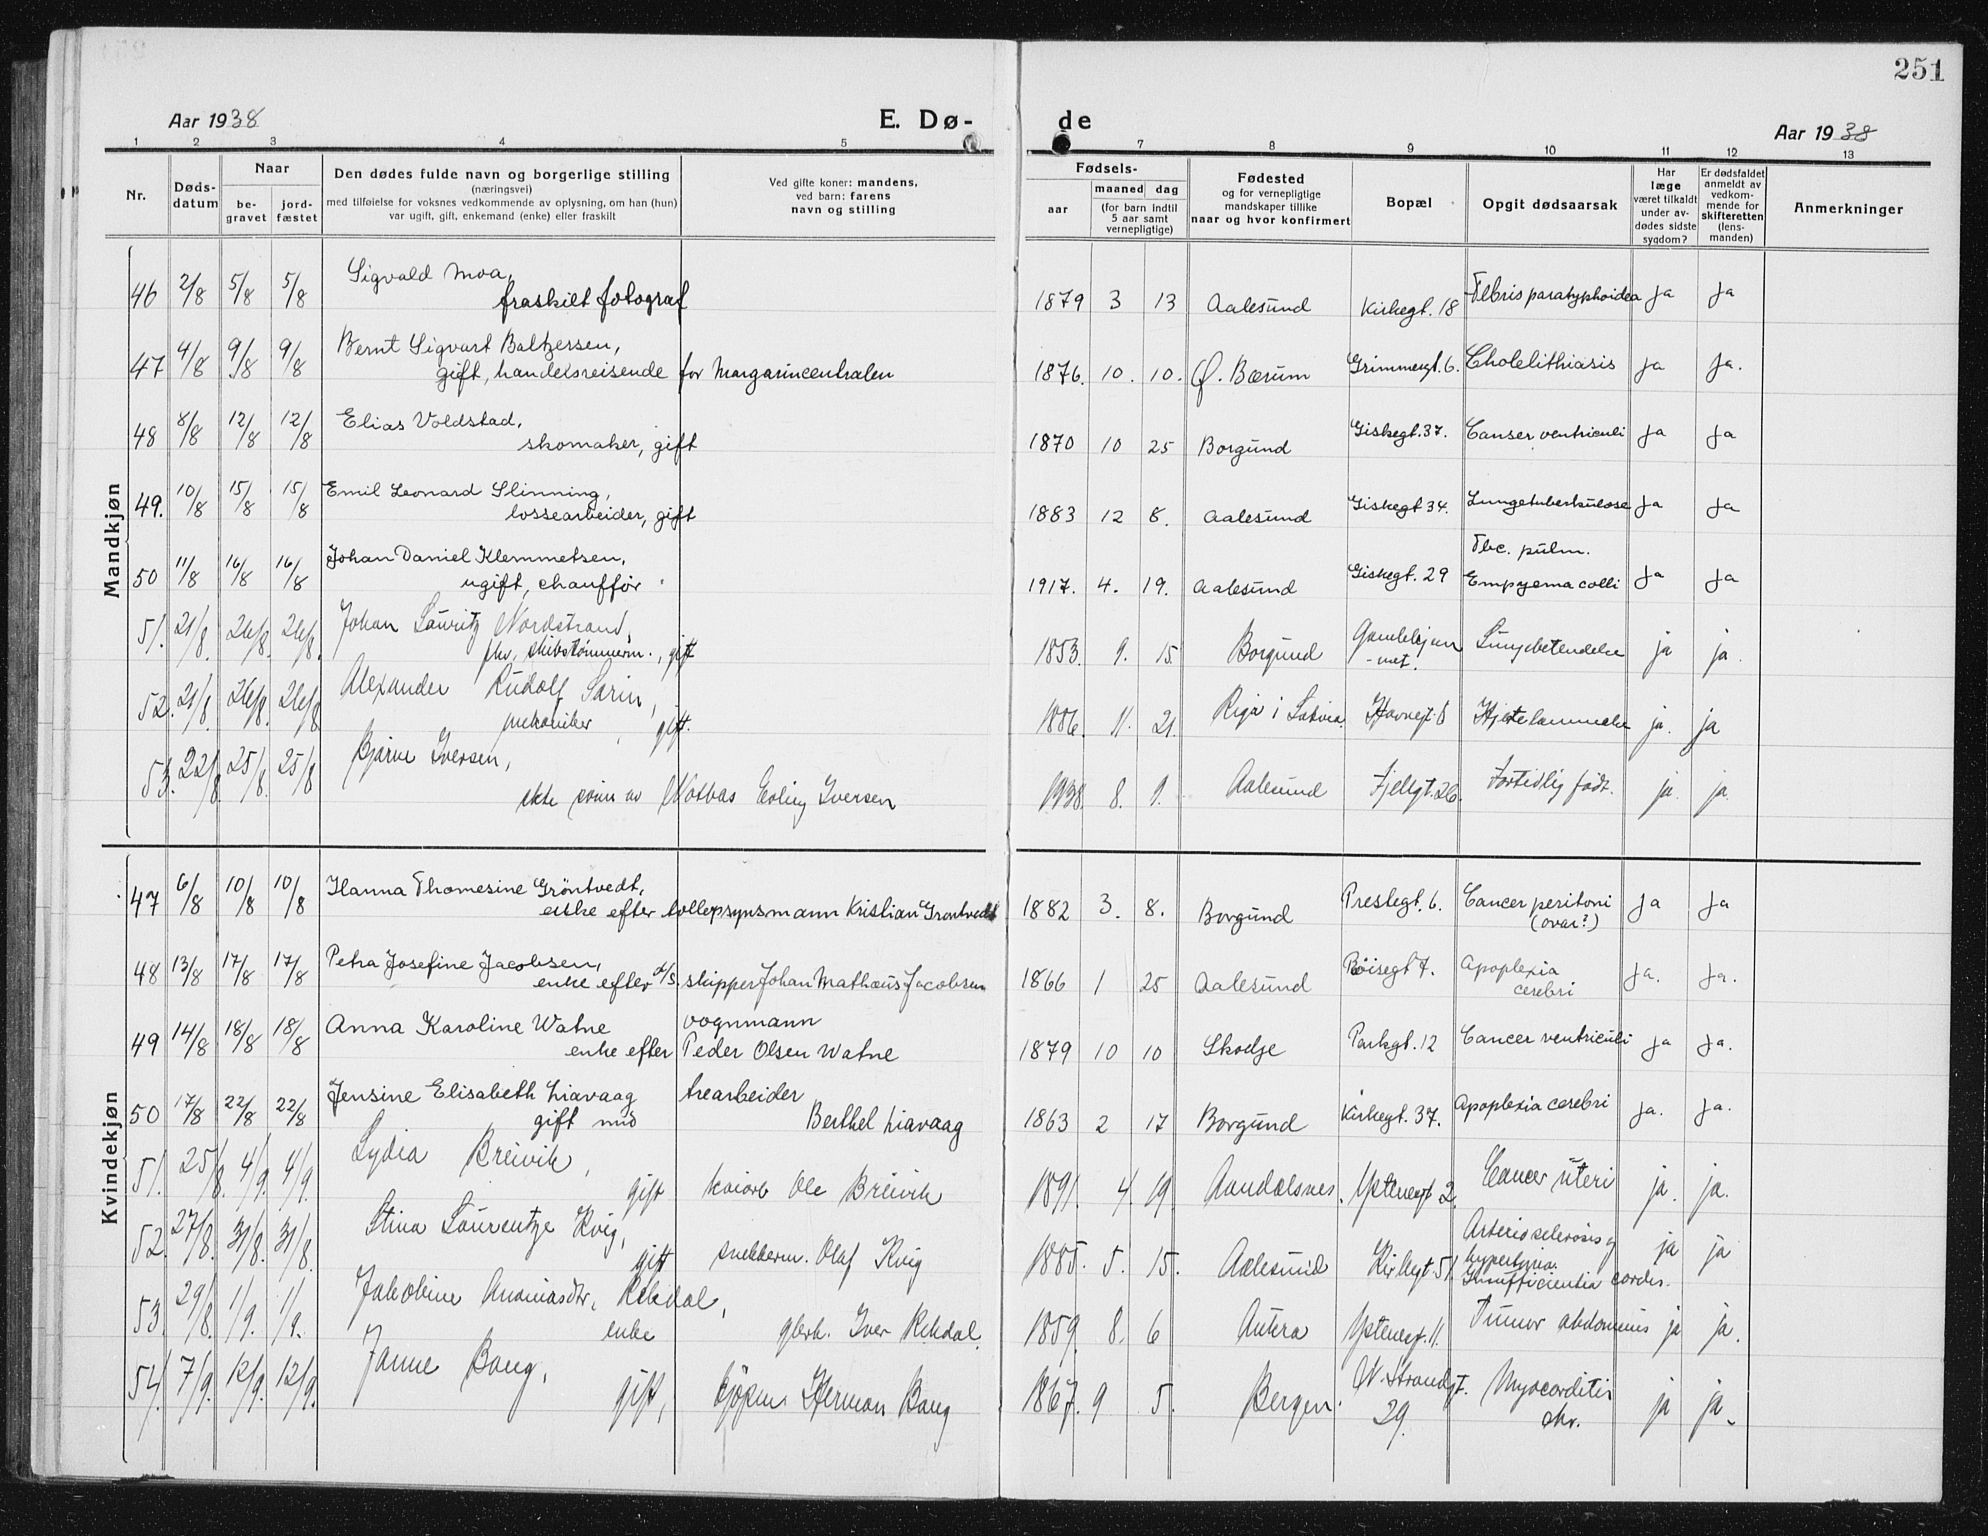 251
Aar 1938
E. Dø-
de
Aar 1938
1 2 3 4 5 7 8 9 10 11 12 13
Nr.
Døds-
datum
Naar
be-
gravet
jord-
fæstet
Den dødes fulde navn og borgerlige stilling
(næringsvei)
med tilføielse for voksnes vedkommende av oplysning, om han (hun)
var ugift, gift, enkemand (enke) eller fraskilt
Ved gifte koner: mandens,
ved barn: farens
navn og stilling
Fødsels-
aar
maaned dag
(for barn indtil
5 aar samt
vernepligtige)
Fødested
og for vernepligtige
mandskaper tillike
naar og hvor konfirmert
Bopæl
Opgit dødsaarsak
Har
læge
været tilkaldt
under av-
dødes sidste
sygdom?
Er dødsfaldet
anmeldt av
vedkom-
mende for
skifteretten
(lens-
manden)
Anmerkninger
Mandkjøn
46 2/8 5/8 5/8 Sigvald Moa,
fraskilt fotograf
1879 3 13 Aalesund Kirkegt. 18 Febris paratyphoidea Ja Ja
47 4/8 9/8 9/8 Bernt Sigvart Baltzersen,
gift, handelsreisende for Margarincentralen
1876. 10. 10. Ø. Bærum Grimmergt. 6. Cholelithiasis Ja Ja.
48 8/8 12/8 12/8 Elias Voldstad,
skomaker, gift
1870 10 25 Borgund Giskegt. 37. Canser ventriculi Ja Ja
49. 10/8 15/8 15/8 Emil Leonard Slinning,
lossearbeider, gift
1883 12 8. Aalesund Giskegt 34. Lungetuberkulose Ja Ja
50 11/8 16/8 16/8 Johan Daniel Klemmetsen,
ugift, chauffør
1917. 4. 19. Aalesund Giskegt. 29 Tbc. pulm.
Empyema colli Ja Ja
51. 21/8. 26/8. 26/8. Johan Lauritz Nordstrand,
fhv. skibstømmerm., gift
1853. 9. 15. Borgund Gamlehjem
-met. Lungebetendelse ja ja.
52. 21/8. 26/8. 26/8 Alexander Rudolf Sarin,
mekaniker, gift.
1886. 11. 21. Riga i Latvia. Havnegt. 8 Hjertelammelse ja. ja
53. 22/8. 25/8. 25/8 Bjarne Iversen,
ekte sønn av Notbas Erling Iversen
1938. 8. 9. Aalesund Fjellgt. 26. Fortidlig født. ja. ja.
Kvindekjøn
47 6/8 10/8 10/8 Hanna Thomesine Grøntvedt,
enke efter tollopsynsmann Kristian Grøntvedt
1882 3. 8. Borgund Prestegt. 6. Cancer peritoni
(ovar?) Ja Ja
48 13/8 17/8 17/8 Petra Josefine Jacobsen,
enke efter d/s. skipper Johan Mathæus Jacobsen
1866 1 25 Aalesund Røisegt 7. Apoplexia
cerebri Ja. Ja.
49 14/8 18/8 18/8 Anna Karoline Watne vognmann
enke efter Peder Olsen Watne
1879 10 10 Skodje Parkgt. 12 Cancer ventriculi Ja Ja.
50 17/8 22/8 22/8 Jensine Elisabeth Liavaag trearbeider
gift med Berthel Liavaag
1863 2 17 Borgund Kirkegt. 37. Apoplexia cerebri Ja. Ja.
51. 25/8. 4/9. 4/9. Lydia Breivik,
gift kaiarb Ole Breivik
1891. 4. 19. Aandalsnes. Ystenesgt 2. Cancer uteri ja. ja.
52. 27/8. 31/8. 31/8. Stina Laurentze Kvig,
gift snekkerm. Olaf Kvig
1885. 5. 15. Aalesund Kirkegt. 51 Arterio sclerosis og
hypertonia.
Insufficientia cordis. ja ja
53. 29/8. 1/9. 1/9. Jakobine Ananiasdtr. Rekdal,
enke gbrk. Iver Rekdal.
1859. 8. 6 Aukra Ystenesgt. 11. Tumor abdominis ja ja.
54. 7/9. 12/9. 12/9. Janne Bang,
gift, kjøpm Herman Bang
1867. 9 5. Bergen. N. Strandgt.
29. Myocarditis
chr. ja ja.